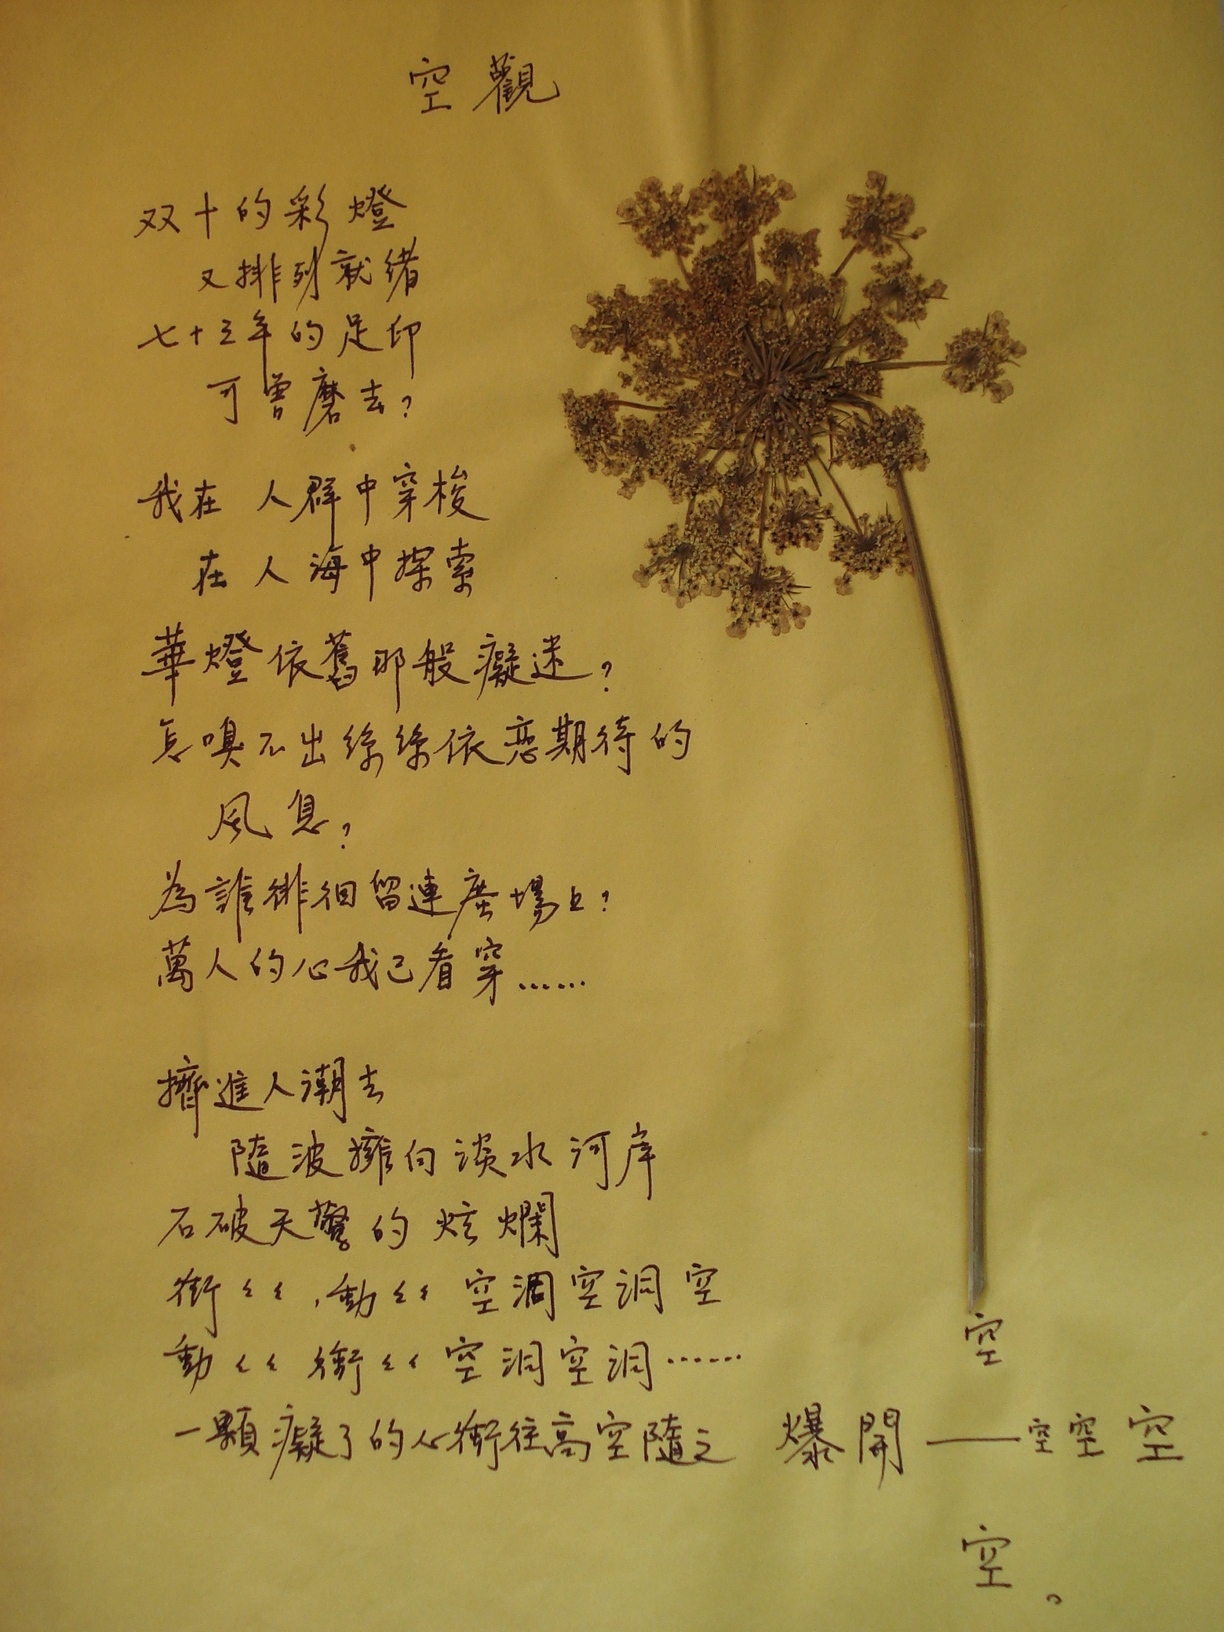 空觀
双十的彩燈
又排列就緒
七十三年的足印
可曾磨去？
我在 人群中穿梭
在人海中探索
華燈依舊那般癡迷？
怎嗅不出絲絲依戀期待的
風息？
為誰徘徊留連廣場上？
萬人的心我已看穿……
擠進人潮去
隨波擁向淡水河岸
石破天驚的炫爛
衝々々，動々々 空洞空洞空
動々々 衝々々 空洞空洞……
一顆癡了的心衝往高空隨之 爆開——空空空
空
空。